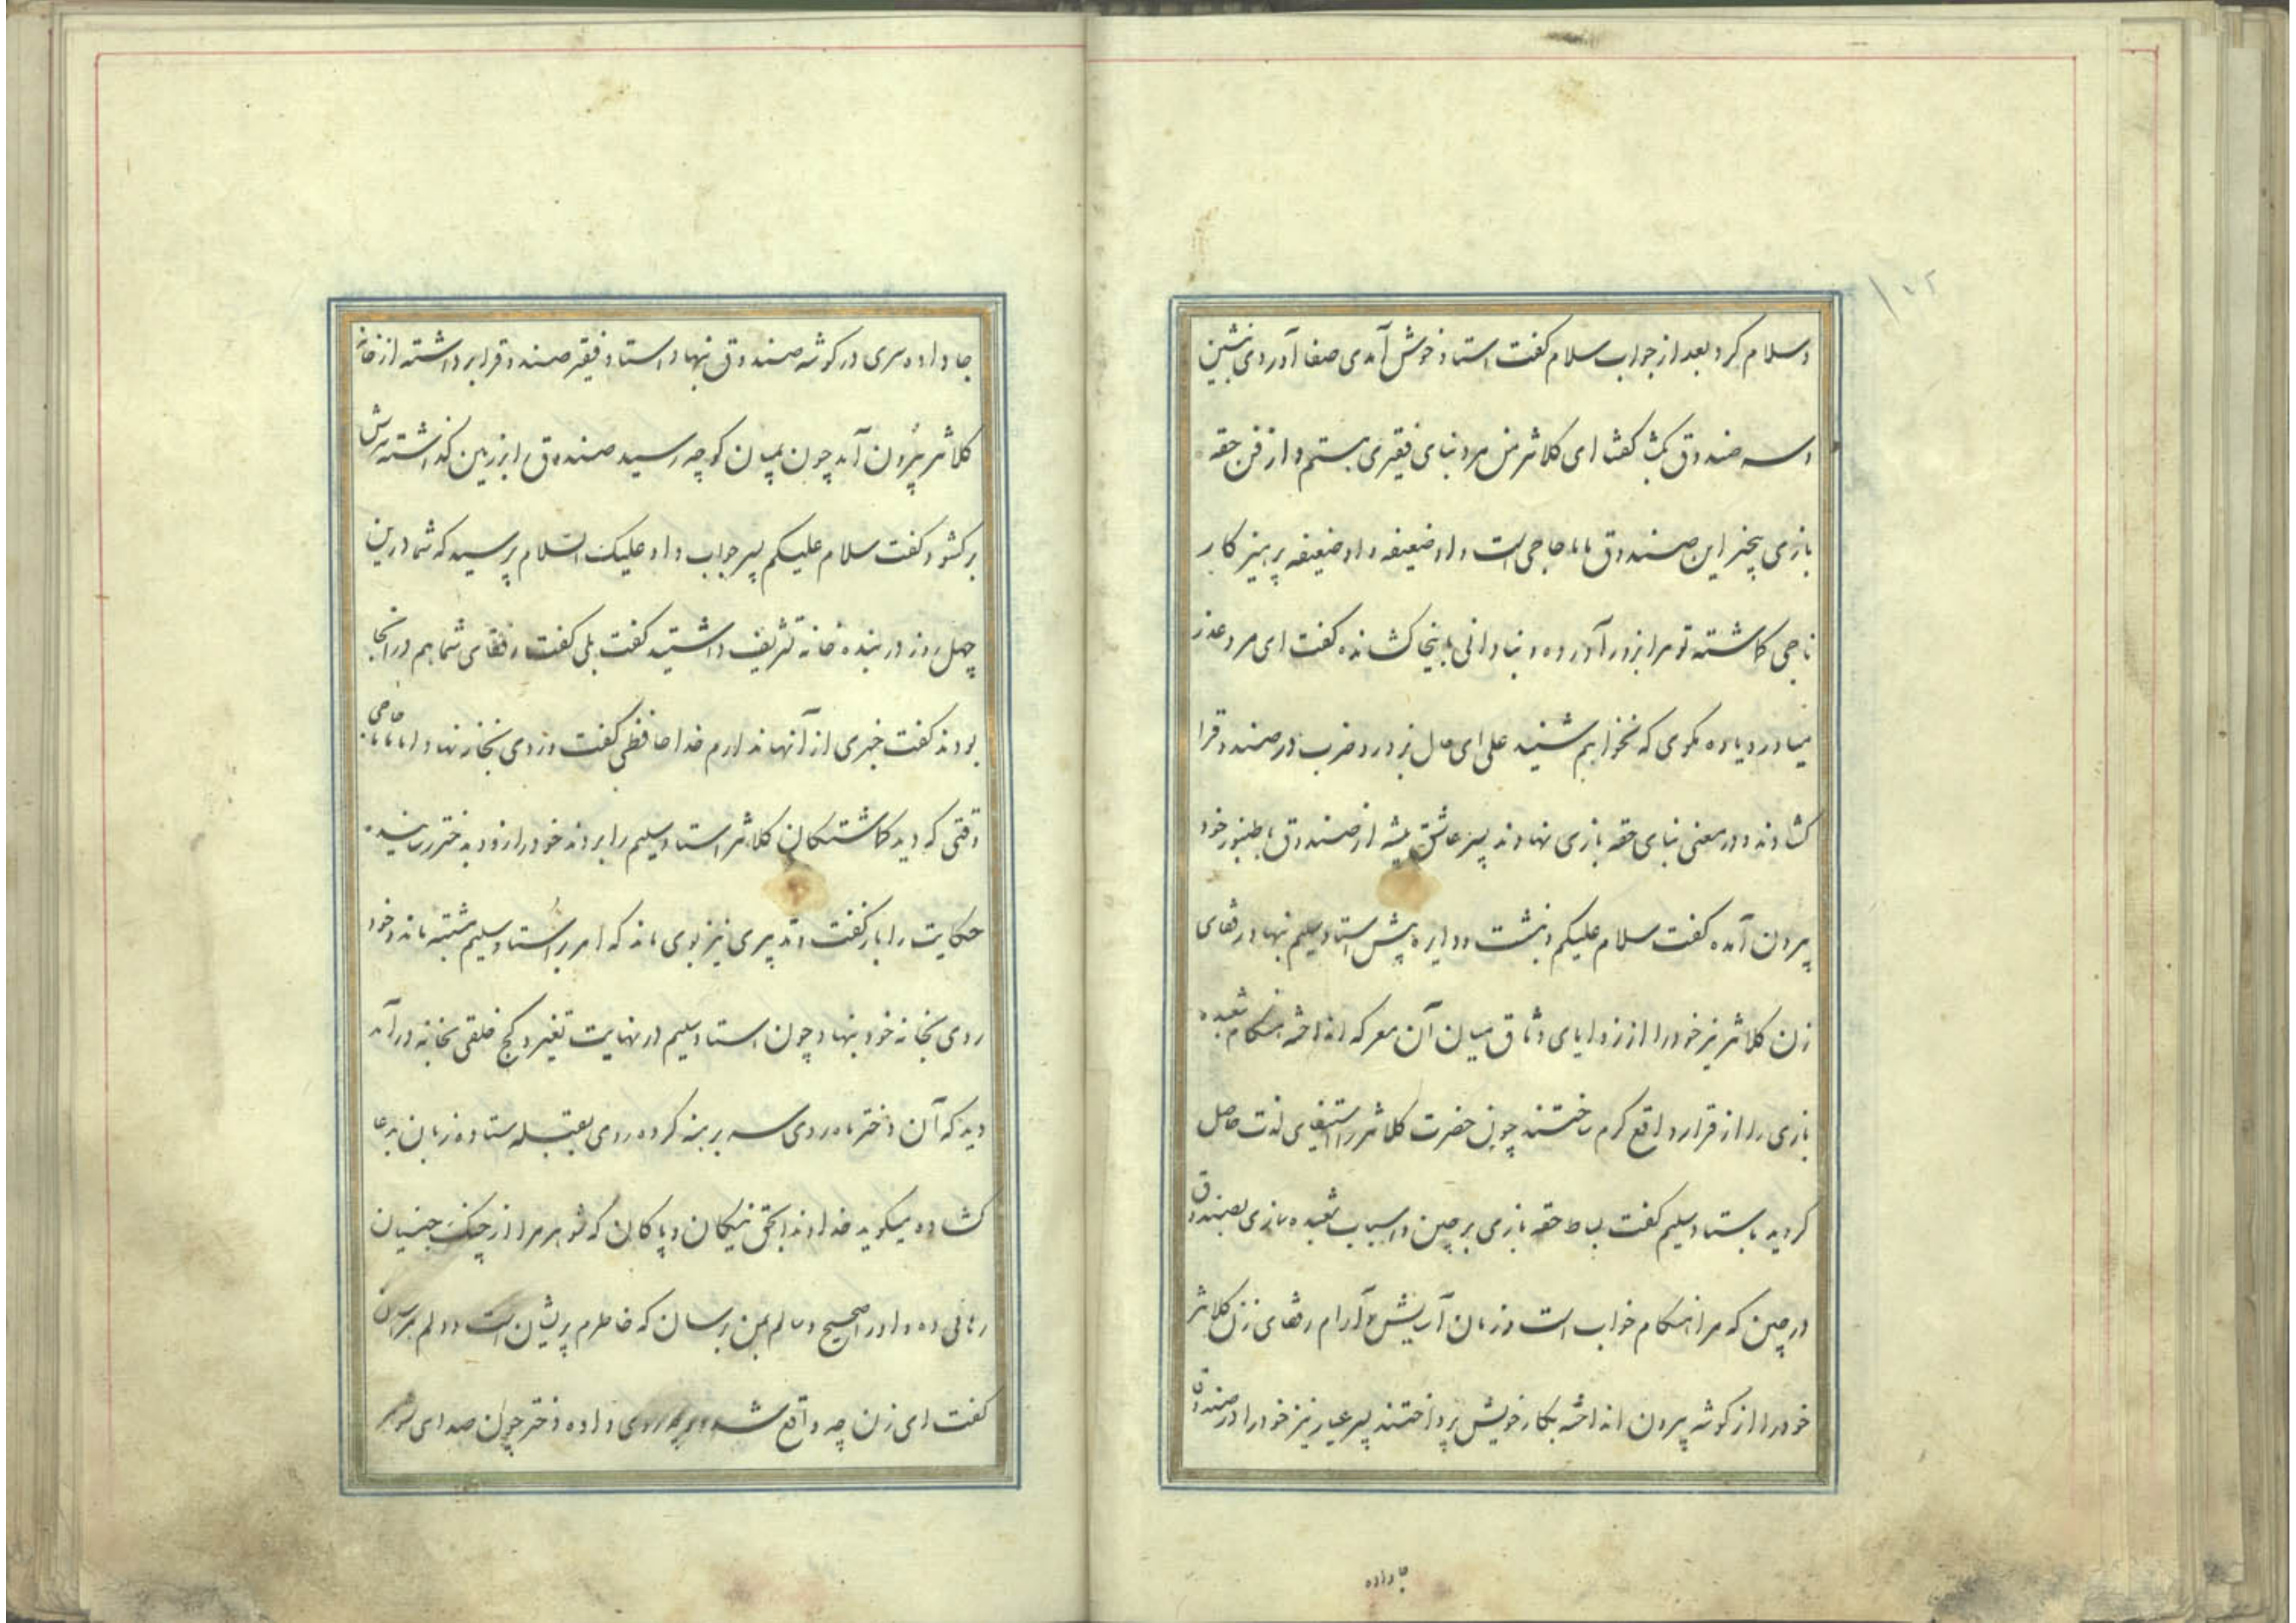 ۱۷۲
و سلام کرد بعد از جواب سلام گفت استاد خوش آمدی صفا آوردی بنشین
و سه صندوق بکشا گفتا ای کلانتر من مرد بنای فقیری هستم و از فن حقه
بازی بیخبر این صندوق ماما حاجی است و او ضعیفه و او ضعیفه پرهیزکار
ناجی کاشته تو مرا بزور آورده و بنادانی باینجا کشانده گفت ای مرد عذر
میاور و یاوه مگوی که نخواهم شنید علی ای حال بزور و ضرب در صندوقرا
کشادند و در معنی بنای حقه بازی نهادند پسر عاشق پیشه از صندوق با طنبور خود
بیرون آمده گفت سلام علیکم و نشست و دایره پیش استاد سلیم نهاد رفقای
زن کلانتر نیز خود را از زوایای وثاق میان آن معرکه انداخته هنگام شعبده
بازی را از قرار واقع گرم ساختند چون حضرت کلانتر را استیفای لذت حاصل
کردید باستاد سلیم گفت بساط حقه بازی برچین و اسباب شعبده بازی بصندوق
در چین که مرا هنگام خواب است و زمان آسایش و آرام رفقای زن کلانتر
خود را از گوشه بیرون انداخته بکار خویش پرداختند پسر عیار نیز خود را در صندوق
جا داده
جا داده سری در گوشه صندوق نهاد استاد فقیر صندوقرا برداشته از خانه
کلانتر بیرون آمد چون بمیان کوچه رسید صندوق را بزمین گذاشته سرش
برکشود گفت سلام علیکم پسر جواب داد و علیک السلام پرسید که شما درین
چهل روز در بنده خانه تشریف داشتید گفت بلی گفت رفقای شما هم در آنجا
بودند گفت خبری از آنها ندارم خدا حافظی گفت و روی بخانه نهاد اما ماما حاجی
وقتی که دید کاشتکان کلانتر استاد سلیم را بردند خود را زود بدختر رسانید
حکایت را باز گفت و تدبیری نیز بوی ماند که امر بر استاد سلیم مشتبه ماند و خود
روی بخانه خود نهاد چون استاد سلیم در نهایت تغیر و کج خلقی بخانه در آمد
دید که آن دختر ماه روی سر برهنه کرده روی بقبله ستاده زبان بدعا
کشاده میگوید خداوندا بحق نیکان و پاکان که شوهر مرا از چنک جنیان
رهائی ده و او را صحیح و سالم بمن برسان که خاطرم پریشان است و دلم هراسان
گفت ای زن چه واقع شده و چه روی داده دختر چون صدای شوهر